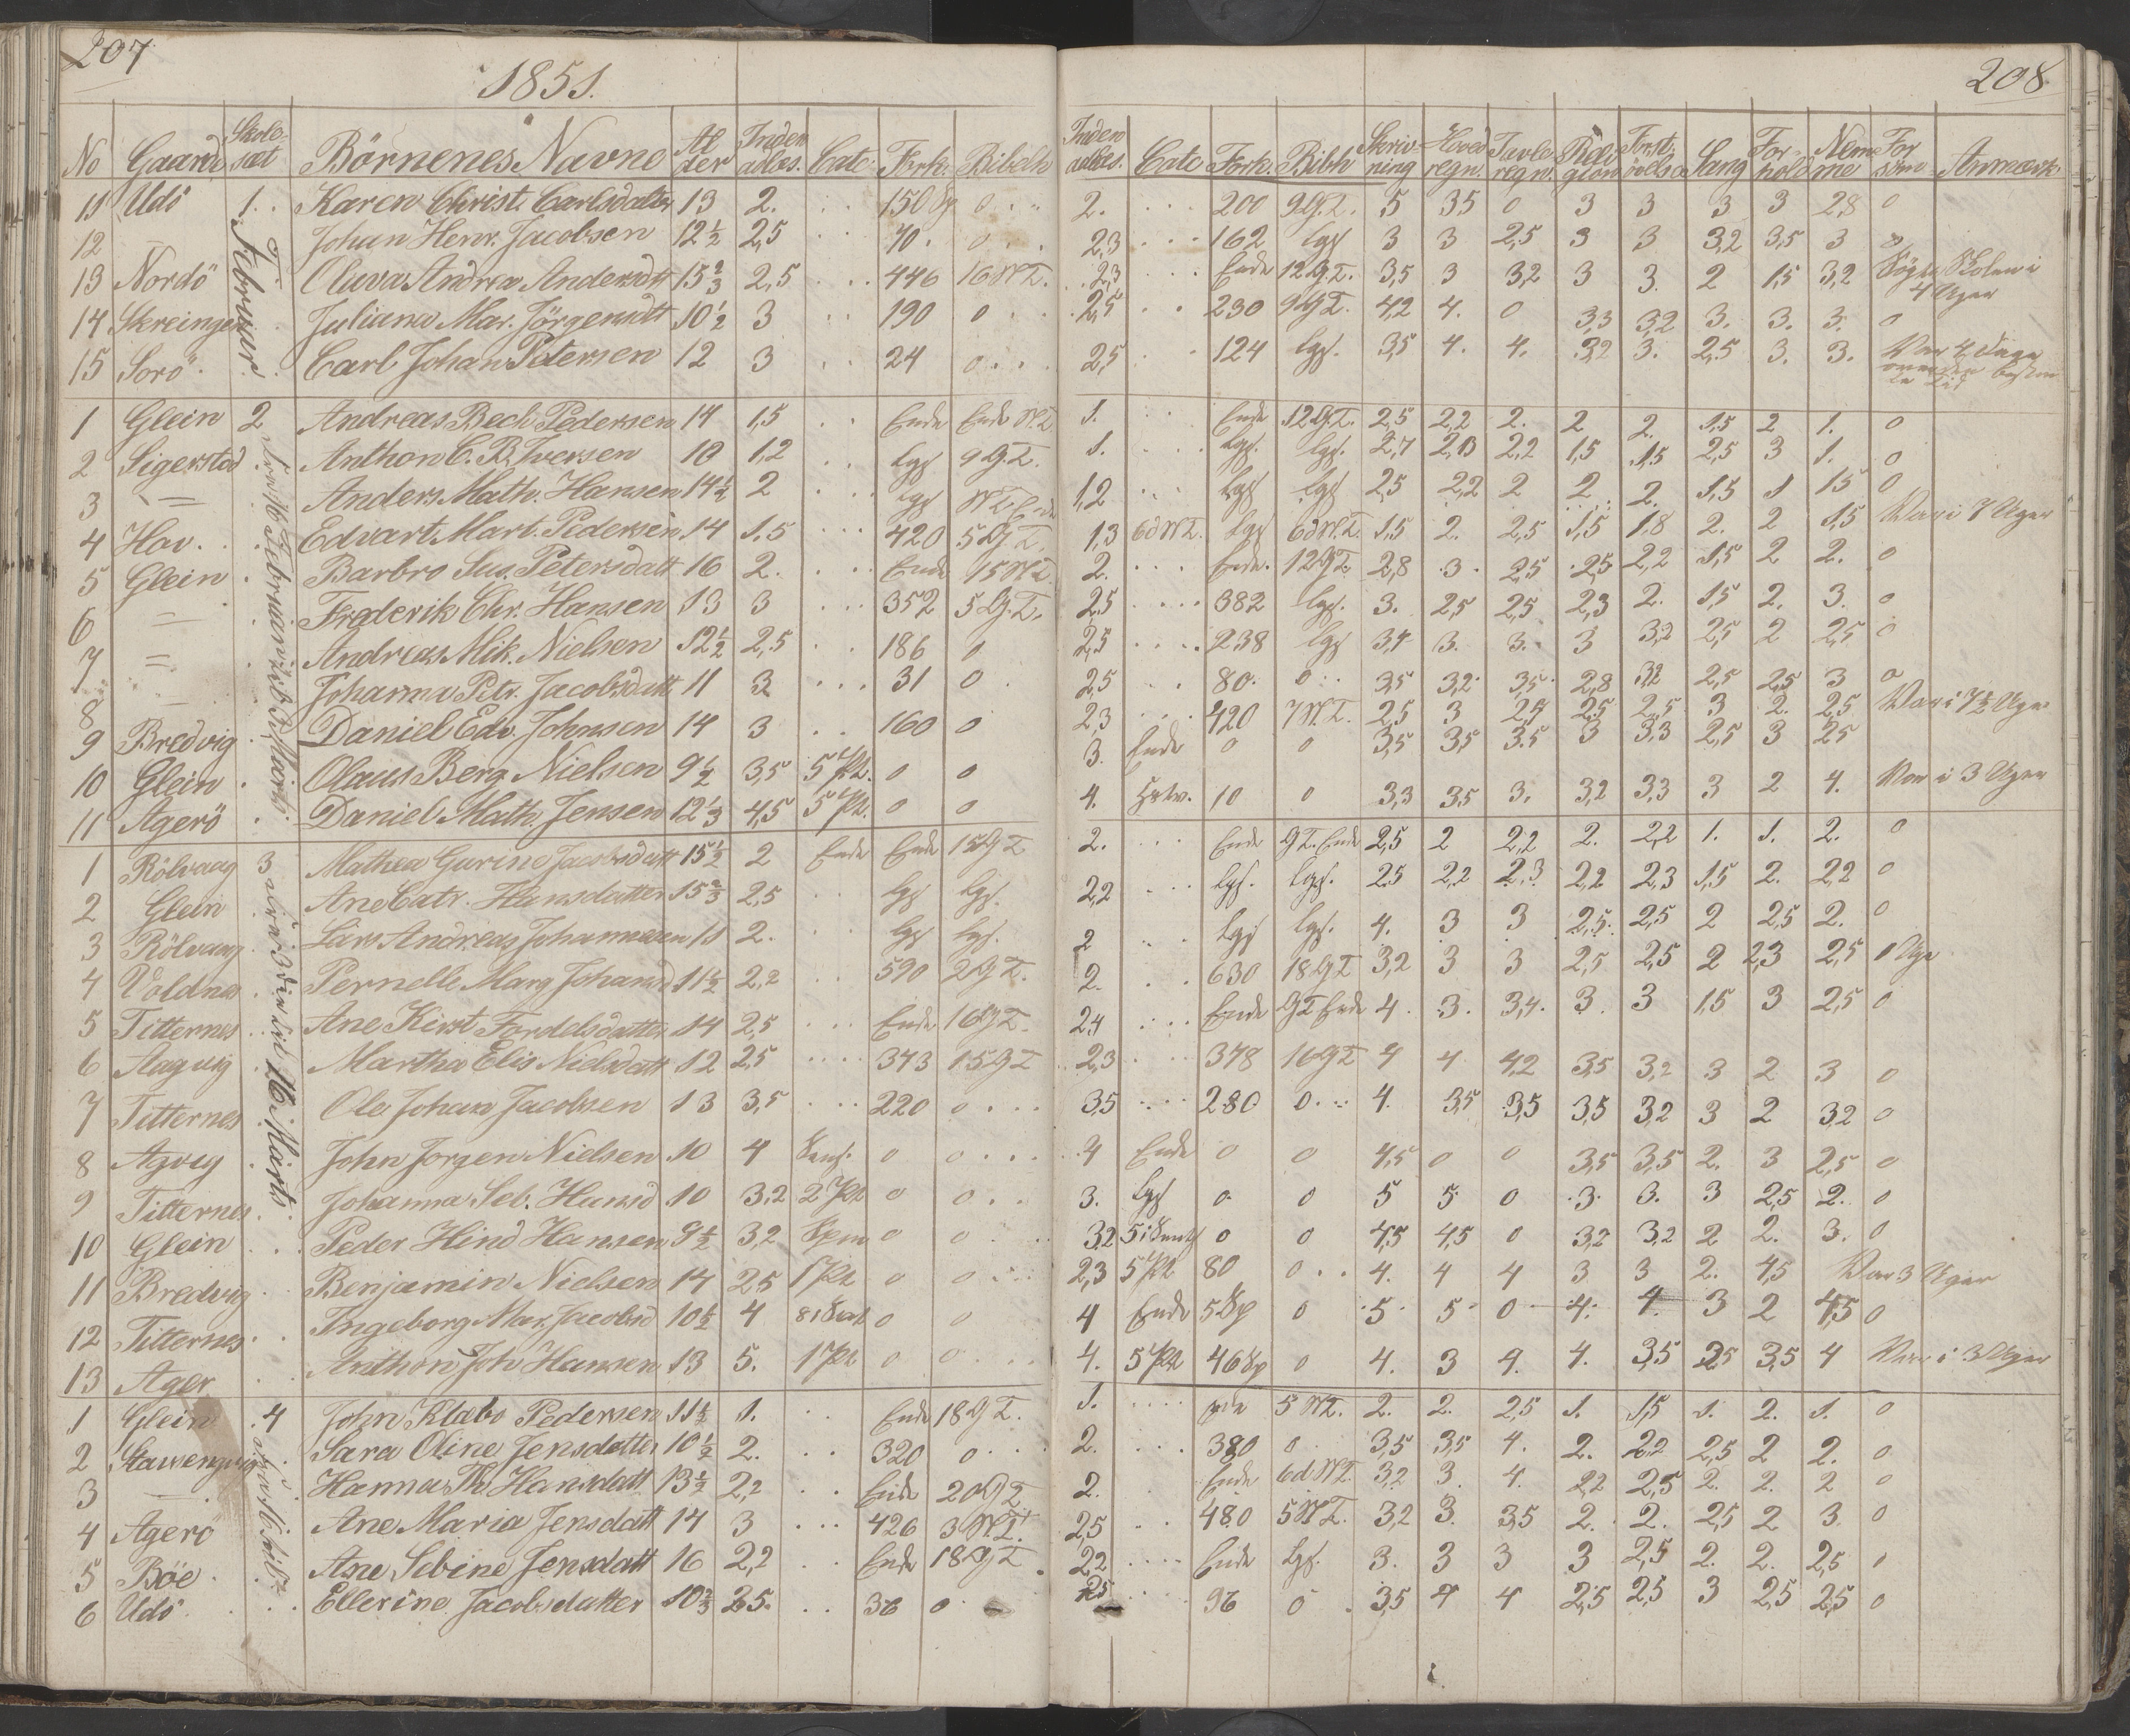 207
1851.
No Gaard Skole-sæt Börnenes Navne Al der Inden adlæs. Cate: Fork. Biblh
11 Udö 1. Karen Christ. Carlsdatter 13 2. 150 Sp 0
12 — Johan Henr. Jacobsen 12½ 2,5 70. 0
13 Nordö Oluva Andrea Andersdtt 15⅔ 2,5 446 16 N.T.
14 Skreinger Juliana Mar. Jörgensdtt 10½ 3 190 0
15 Sorö Carl Johan Petersen 12 3 24 0
Februar
1 Glein 2 Andreas Bech Pedersen 14 1,5 Ende Ende N.T.
2 Sigerstad Anthon C. B. Iversen 10 1,2 Lgs 9 G.T.
3 — Anders Math. Hansen 14½ 2 Lgs N.T. Ende
4 Hav. Edvart Mart. Pedersen 14 1.5 420 5 G.T.
5 Glein Barbro Sus. Petersdatt 16 2. Ende 15 N.T.
6 — Frederik Chr. Hansen 13 3 352 5 G.T.
7 — Andreas Mik. Nielsen 12½ 2,5 186 0
8 — Johanna Petr. Jacobsdatt 11 3 31 0
9 Bredvig Daniel Edv. Johnsen 14 3 160 0
10 Glein Olaus Berg Nielsen 9½ 3,5 5 Pt. 0 0
11 Agerö Daniel Math. Jensen 12⅓ 4,5 5 Pt. 0 0
1 Rölvaag 3 Mathea Gurine Jacobsdatt 15½ 2 Ende Ende 15 G T
2 Glein Ane Catr. Hansdatter 15⅔ 2,5 Lgs Lgs.
3 Rölvaag Lars Andreas Johannesen 11 2. Lgs Lgs.
4 Voldnes Pernelle Marg Johansd 11½ 2,2 590 2 G T.
5 Titternes Ane Kirst. Fordelsdatter 14 2,5 Ende 16 G T.
6 Aagvig Martha Elis Nielsdatt 12 2,5 343 15 G T
7 Titternes Ole Johan Jacobsen 13 3,5 220 0
8 Agvig John Jörgen Nielsen 10 4 0 0
9 Titternes Johanna Seb. Hansd 10 3,2 2 Pt 0 0
10 Glein Peder Hind Hansen 9½ 3,2 0 0
11 Bredvig Benjamin Nielsen 14 2,5 1 Pt 0 0
12 Titternes Ingeborg Mar. Jacobsd 10½ 4 0 0
13 Ager Anthon Joh Hansen 13 5. 1 Pt 0 0
til 16 Marts
1 Glein 4 John Klæbo Pedersen 11½ 1. Ende 18 G T.
2 Stavsengvig Sara Oline Jensdatter 10½ 2. 320 0
3 — Hanna Th. Hansdatt 13½ 2,2 Ende 20 G T
4 Agerö Ane Maria Jensdatt 14 3 426 3 N.T.
5 Böe Ane Sebine Jensdatt 16 2,2 Ende 18 G T
6 Udö Ellerine Jacobsdatter 10⅔ 2,5. 36 0
208
Inden adlæs. Cate Fork. Biblh Skriv-ning Hoved regn. Tavle regn. Reli gion Forst. övelse Sang For-hold Nem me For söm Anmærk.
2. 200 9 G.T. 5 35 0 3 3 3 3 2,8 0
2,3 162 Lgs 3 3 2,5 3 3 3,2 3,5 3
2,3 Ende 12 G.T. 3,5 3 3,2 3 3. 2 1,5 3,2 Sögte Skolen i 4 Uger
2,5 230 9 G T. 4,2 4. 0 3,3 3,2 3. 3. 3. 0
2,5 124 Lgs. 3,5 4. 4. 3,2 3. 2,5 3. 3. Var 4 Dage
1. Ende 12 G.T. 2,5 2,2 2. 2 2. 1,5 2 1. 0
1. Lgs. Lgs. 2,7 2,3 2,2 1,5 1,5 2,5 3 1. 0
1,2 Lgs Lgs 2,5 2,2 2 2 2. 1,5 1 1,5 0
1,3 6 d N T. Lgs 6 d N.T. 1,5 2. 2,5 1,5 1,8 2. 2 1,5 Var i 7 Uger
2. Ende. 12 G T. 2,8 3 2,5 2,5 2,2 1,5 2 2. 0
2,5 382 Lgs. 3. 2,5 2,5 2,3 2. 1,5 2. 3. 0
2,5 238 Lgs 3,4 3. 3. 3 3,2 2,5 2 2,5 0
2,5 80. 0 3,5 3,2 3,5 2,8 3,2 2,5 2,5 3 0
2,3 420 7 N.T. 2,5 3 2,7 2,5 2,5 3 2. 2,5 Var i 7½ Uger
3. Ende 0 0 3,5 3,5 3,5 3 3,3 2,5 3 2,5
4. 10 0 3,3 3,5 3. 3,2 3,3 3 2 4. Var i 3 Uger
2. Ende G T. Ende 2,5 2 2,2 2. 2,2 1. 1. 2. 0
2,2 Lgs. Lgs. 2,5 2,2 2,3 2,2 2,3 1,5 2. 2,2 0
2 Lgs Lgs. 4. 3 3 2,5. 2,5 2 2,5 2. 0
2. 630 18 G T 3,2 3 3 2,5 2,5 2 2,3 2,5 1 Uge
2,4 Ende G T Ende 4. 3. 3,4. 3. 3 1,5 3 2,5 0
2,3 378 16 G T 4 4 4,2 3,5 3,2 3 2 3 0
3,5 280 0 4. 3,5 3,5 3,5 3,2 3 2 3,2 0
4 Ende 0 0 4,5 0 0 3,5 3,5 2. 3 2,5 0
3. Lgs 0 0 5 5 0 3. 3. 3 2,5 2. 0
3,2 0 0 4,5 4,5 0 3,2 3,2 2 2. 3. 0
2,3 5 Pt 80 0 4. 4 4 3 3 2. 4,5 Var 3 Uger
4 Ende 5 Sp 0 5 5 0 4. 4. 3 2 4,5 0
4. 5 Pt 46 Sp 0 4. 3 4. 4. 3,5 2,5 3,5 4 Var i 3 Uger
1. Ende 5 N T. 2. 2. 2,5 1. 1,5 1. 2. 1. 0
2. 380 0 3,5 3,5 4. 2. 2,2 2,5 2 2. 0
2. Ende 6 d N T. 3,2 3. 4. 2,2 2,5 2. 2. 2 0
2,5 480 5 N T. 3,2 3. 3,5 2. 2. 2,5 2 3. 0
2,2 Ende Lgs. 3. 3 3 3 2,5 2. 2. 2,5 1
2,5 96 0 3,5 4 4 2,5 2,5 3 2,5 2,5 0